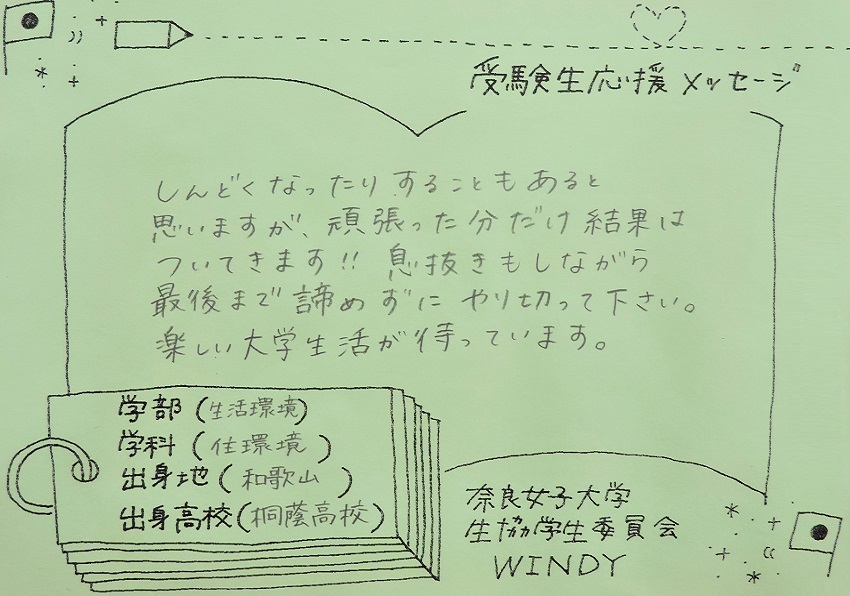 受験生応援メッセージ
しんどくなったりすることもあると
思いますが、頑張った分だけ結果は
ついてきます!! 息抜きもしながら
最後まで諦めずにやり切って下さい。
楽しい大学生活が待っています。
学部(生活環境)
学科(住環境)
出身地(和歌山)
出身高校(桐蔭高校)
奈良女子大学
生協学生委員会
WINDY